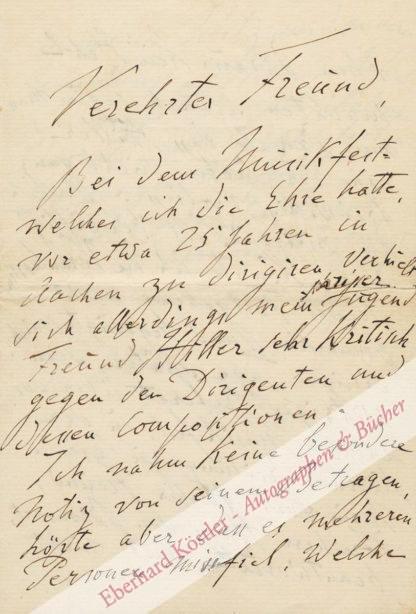 Verehrter Freund,
Bei dem Musikfest=
welches ich die Ehre hatte,
vor etwa 25 Jahren in
Aachen zu dirigiren verhielt
pariser
sich allerdings mein Jugend
Freund Hiller sehr kritisch
gegen den Dirigenten und
dessen Compositionen.
Ich nahm keine besondere
Notiz von seinem Betragen,
hörte aber, dass es mehreren
Personen missfiel, welche
Eberhard Köstler - Autographen & Bücher